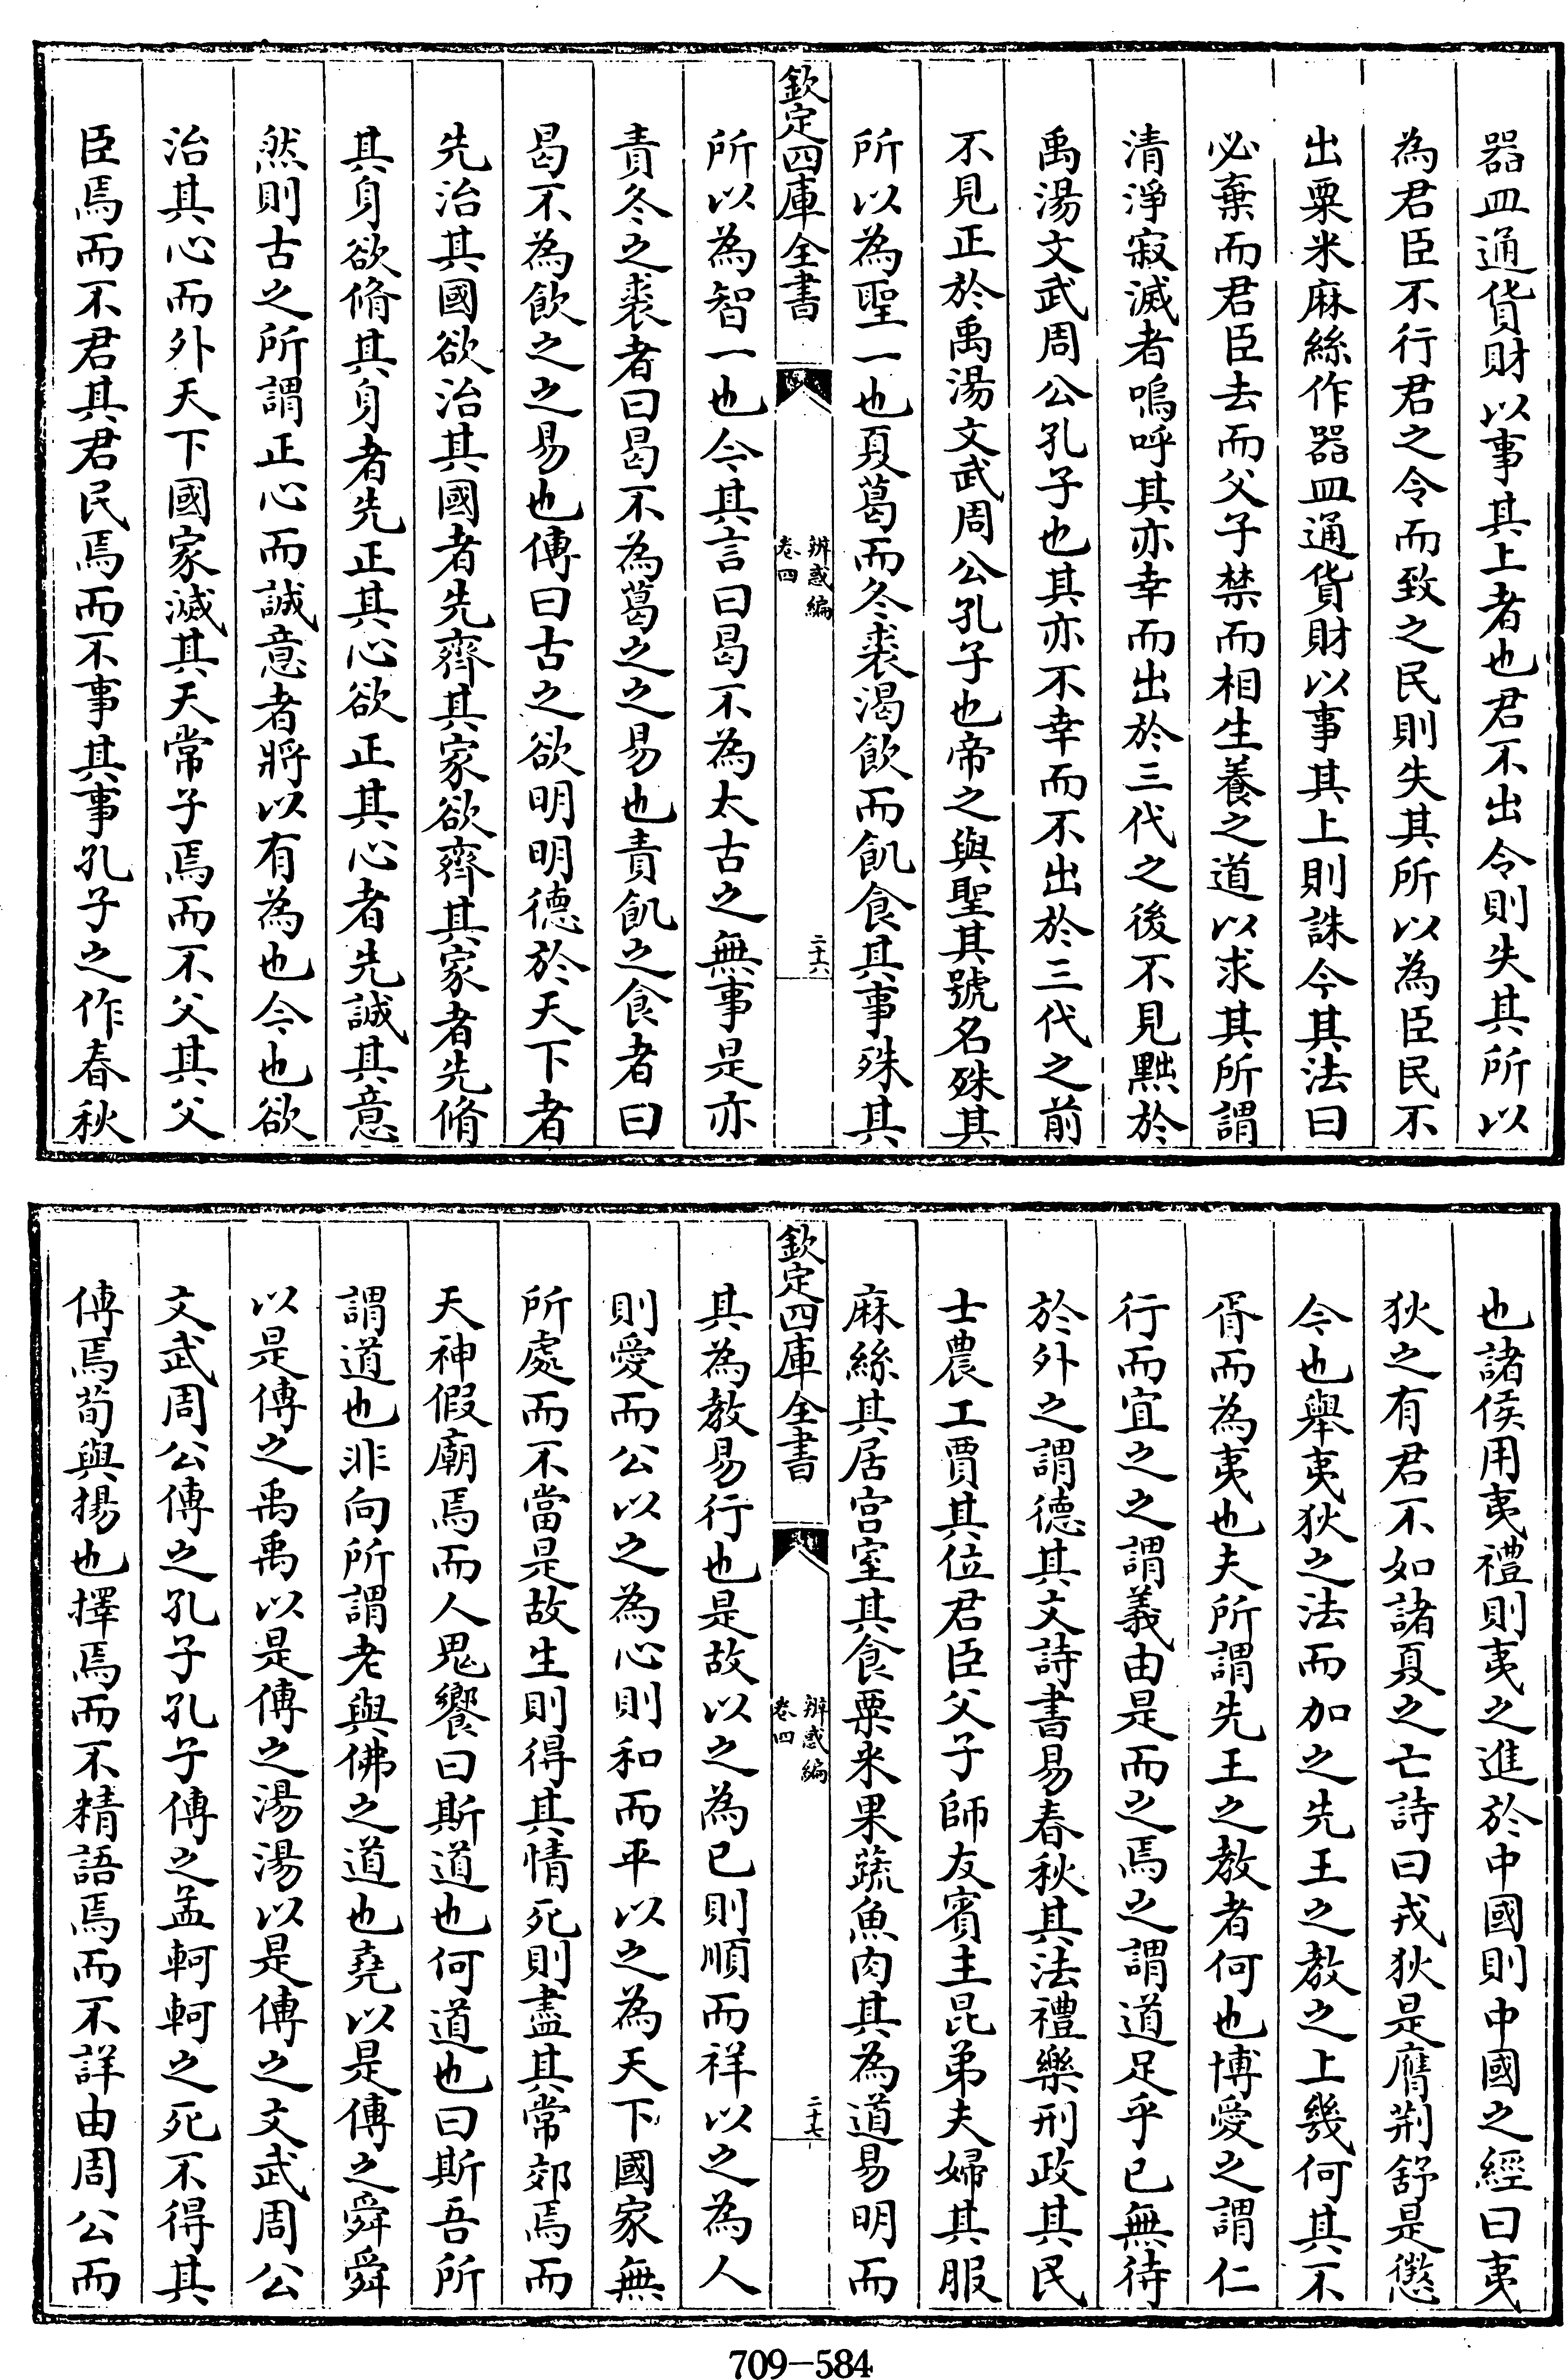 器皿通貨財以事其上者也君不出令則失其所以
為君臣不行君之令而致之民則失其所以為臣民不
出粟米麻絲作器皿通貨財以事其上則誅今其法曰
必棄而君臣去而父子禁而相生養之道以求其所謂
清淨寂滅者嗚呼其亦幸而出於三代之後不見黜於
禹湯文武周公孔子也其亦不幸而不出於三代之前
不見正於禹湯文武周公孔子也帝之與聖其號名殊其
所以為聖一也夏葛而冬裘渴飲而飢食其事殊其
欽定四庫全書
辨惑編
卷四
二十六
所以為智一也今其言曰曷不為太古之無事是亦
責冬之裘者曰曷不為葛之之易也責飢之食者曰
曷不為飲之之易也傳曰古之欲明明德於天下者
先治其國欲治其國者先齊其家欲齊其家者先脩
其身欲脩其身者先正其心欲正其心者先誠其意
然則古之所謂正心而誠意者將以有為也今也欲
治其心而外天下國家滅其天常子焉而不父其父
臣焉而不君其君民焉而不事其事孔子之作春秋
也諸侯用夷禮則夷之進於中國則中國之經曰夷
狄之有君不如諸夏之亡詩曰戎狄是膺荆舒是懲
今也舉夷狄之法而加之先王之教之上幾何其不
胥而為夷也夫所謂先王之教者何也博愛之謂仁
行而宜之之謂義由是而之焉之謂道足乎已無待
於外之謂德其文詩書易春秋其法禮樂刑政其民
士農工賈其位君臣父子師友賓主昆弟夫婦其服
麻絲其居宫室其食粟米果蔬魚肉其為道易明而
欽定四庫全書
辨惑編
卷四
二十七
其為教易行也是故以之為已則順而祥以之為人
則愛而公以之為心則和而平以之為天下國家無
所處而不當是故生則得其情死則盡其常郊焉而
天神假廟焉而人鬼饗曰斯道也何道也曰斯吾所
謂道也非向所謂老與佛之道也堯以是傳之舜舜
以是傳之禹禹以是傳之湯湯以是傳之文武周公
文武周公傳之孔子孔子傳之孟軻軻之死不得其
傳焉荀與揚也擇焉而不精語焉而不詳由周公而
709-584